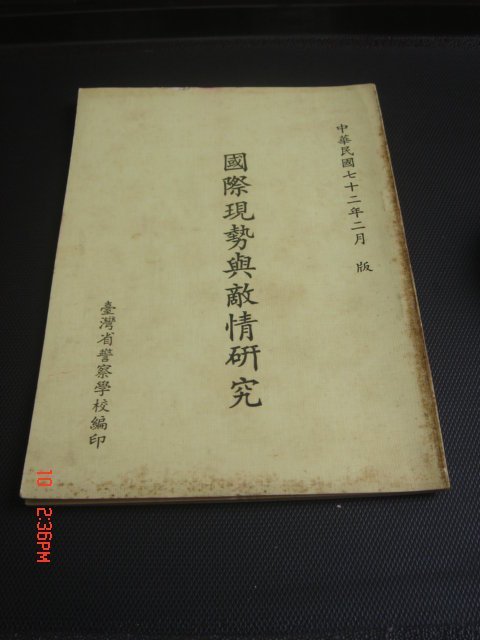 中華民國七十二年二月 版
國際現勢與敵情研究
臺灣省警察學校編印
10 2:36PM